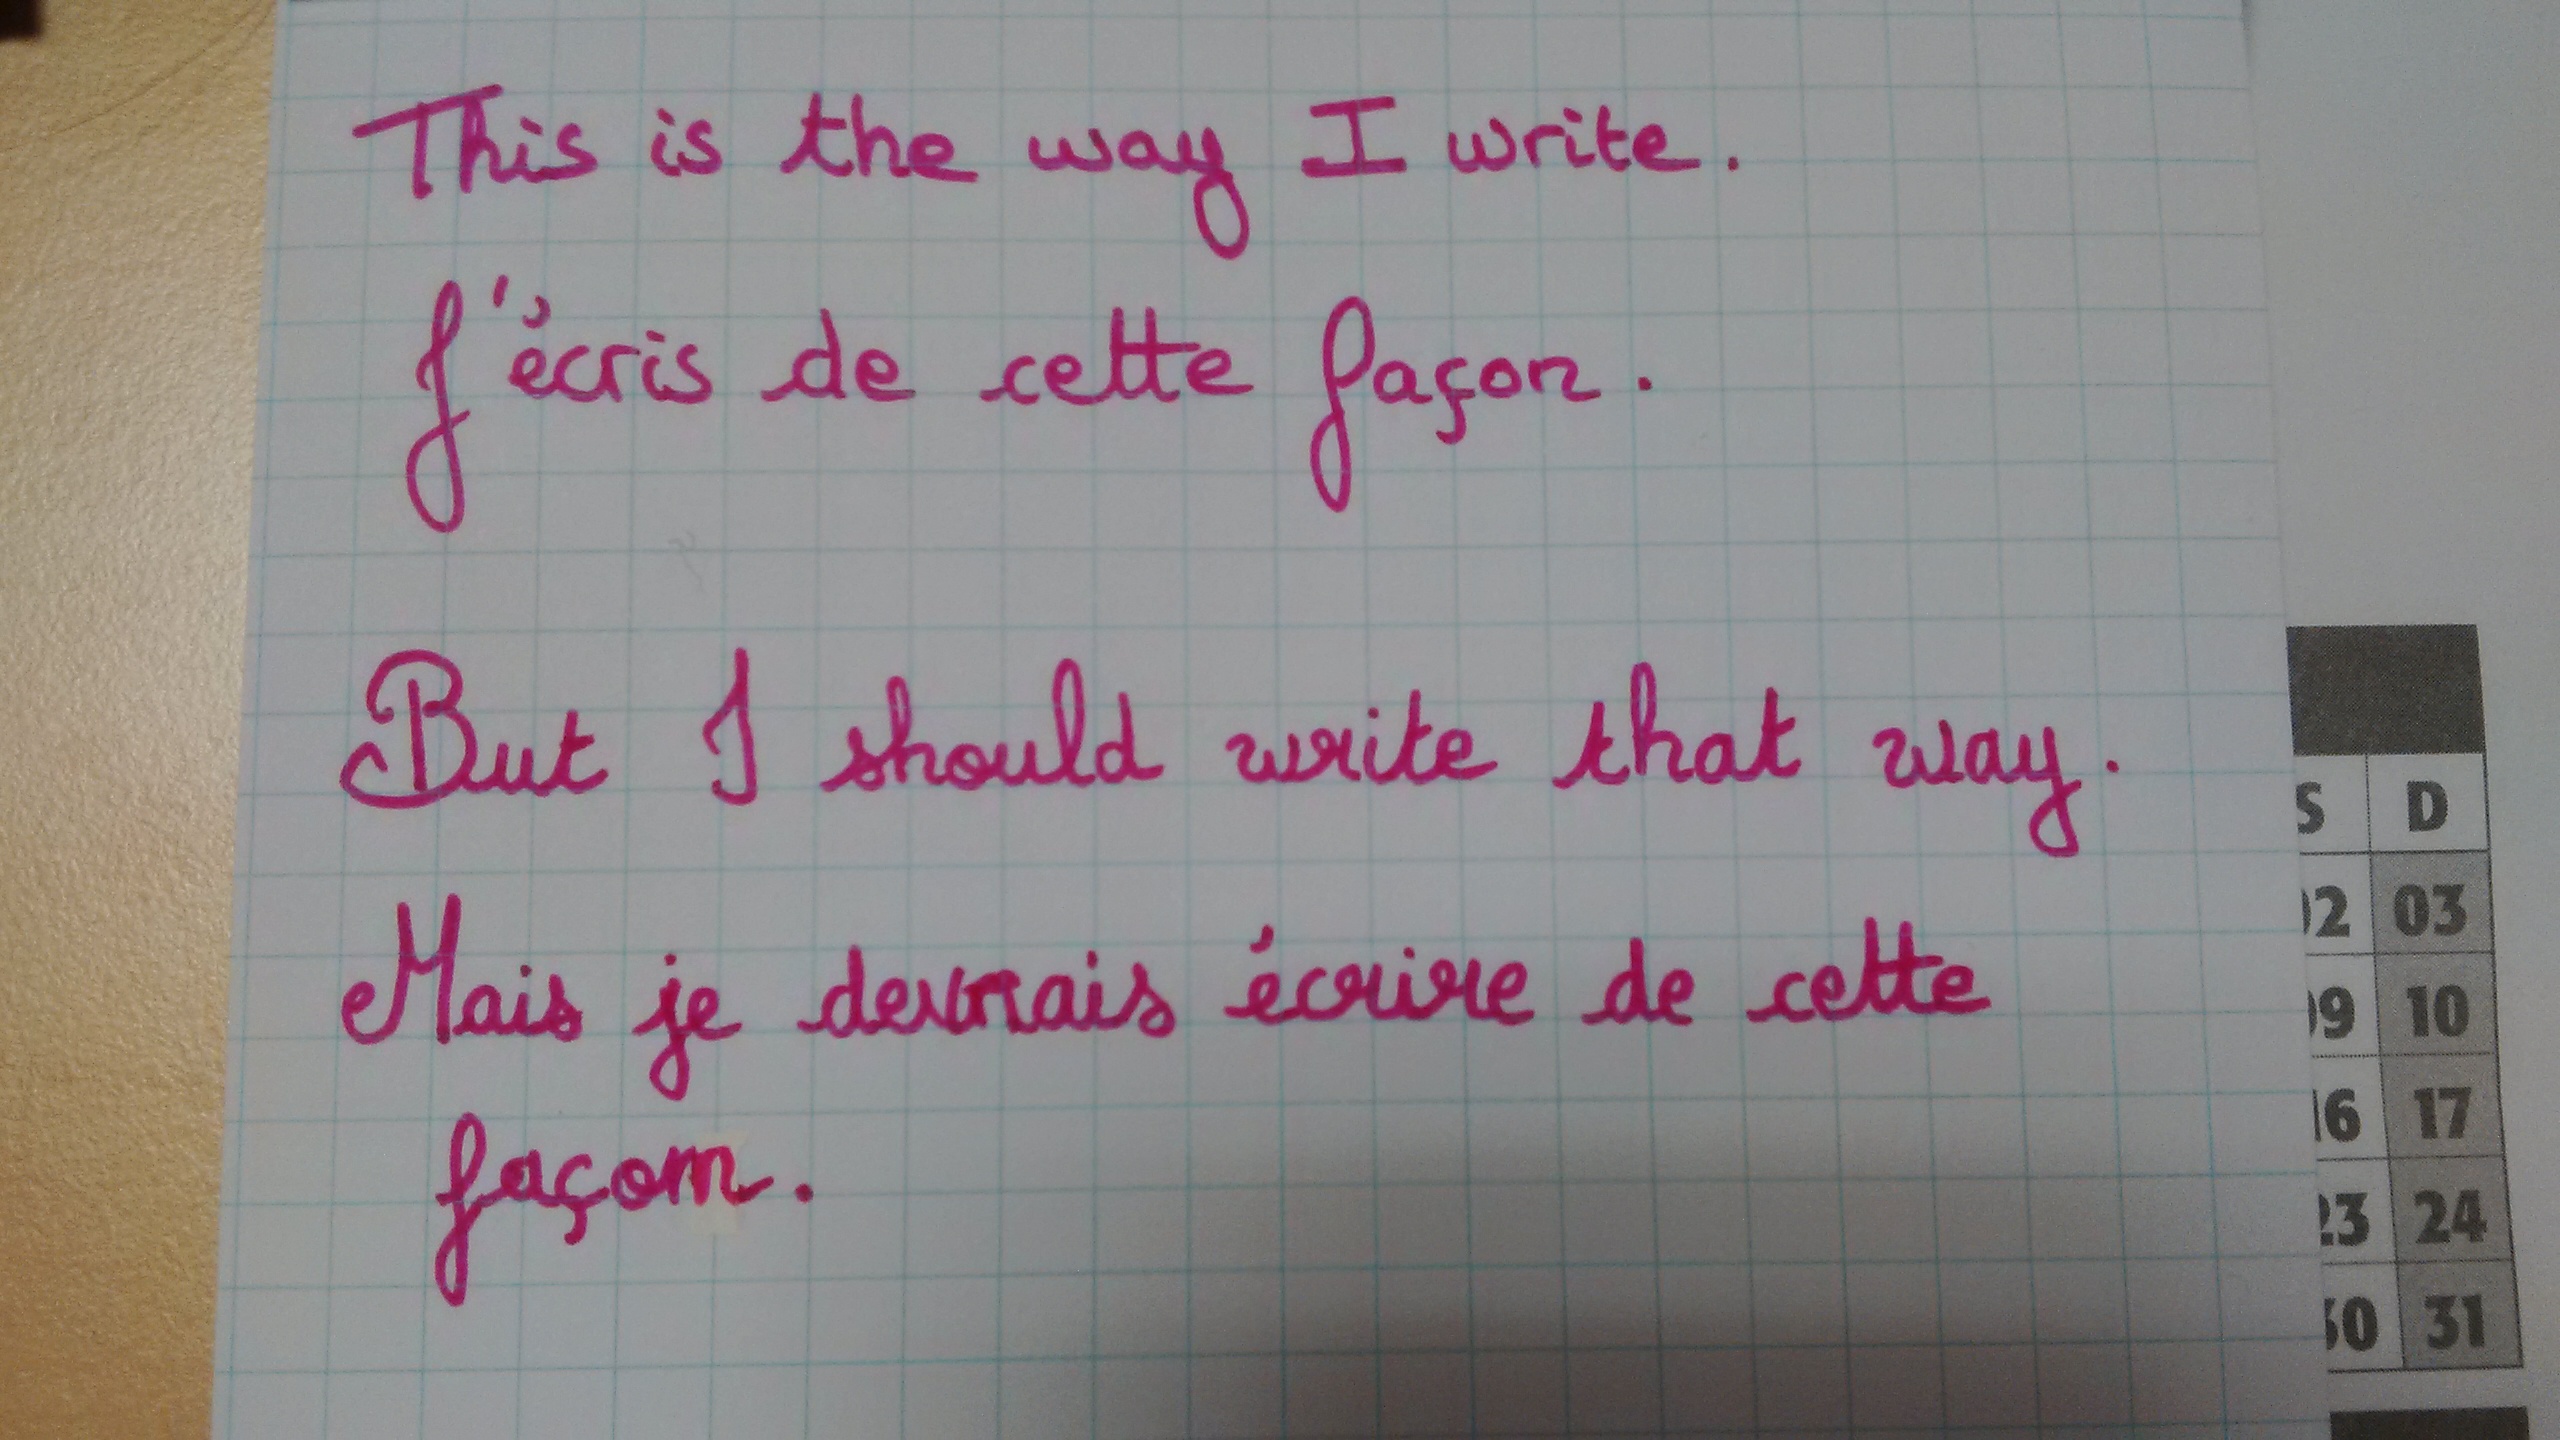 This is the way I write.
J'écris de cette façon.
But I should write that way.
Mais je devrais écrire de cette
façon.
S D
02 03
09 10
16 17
23 24
30 31